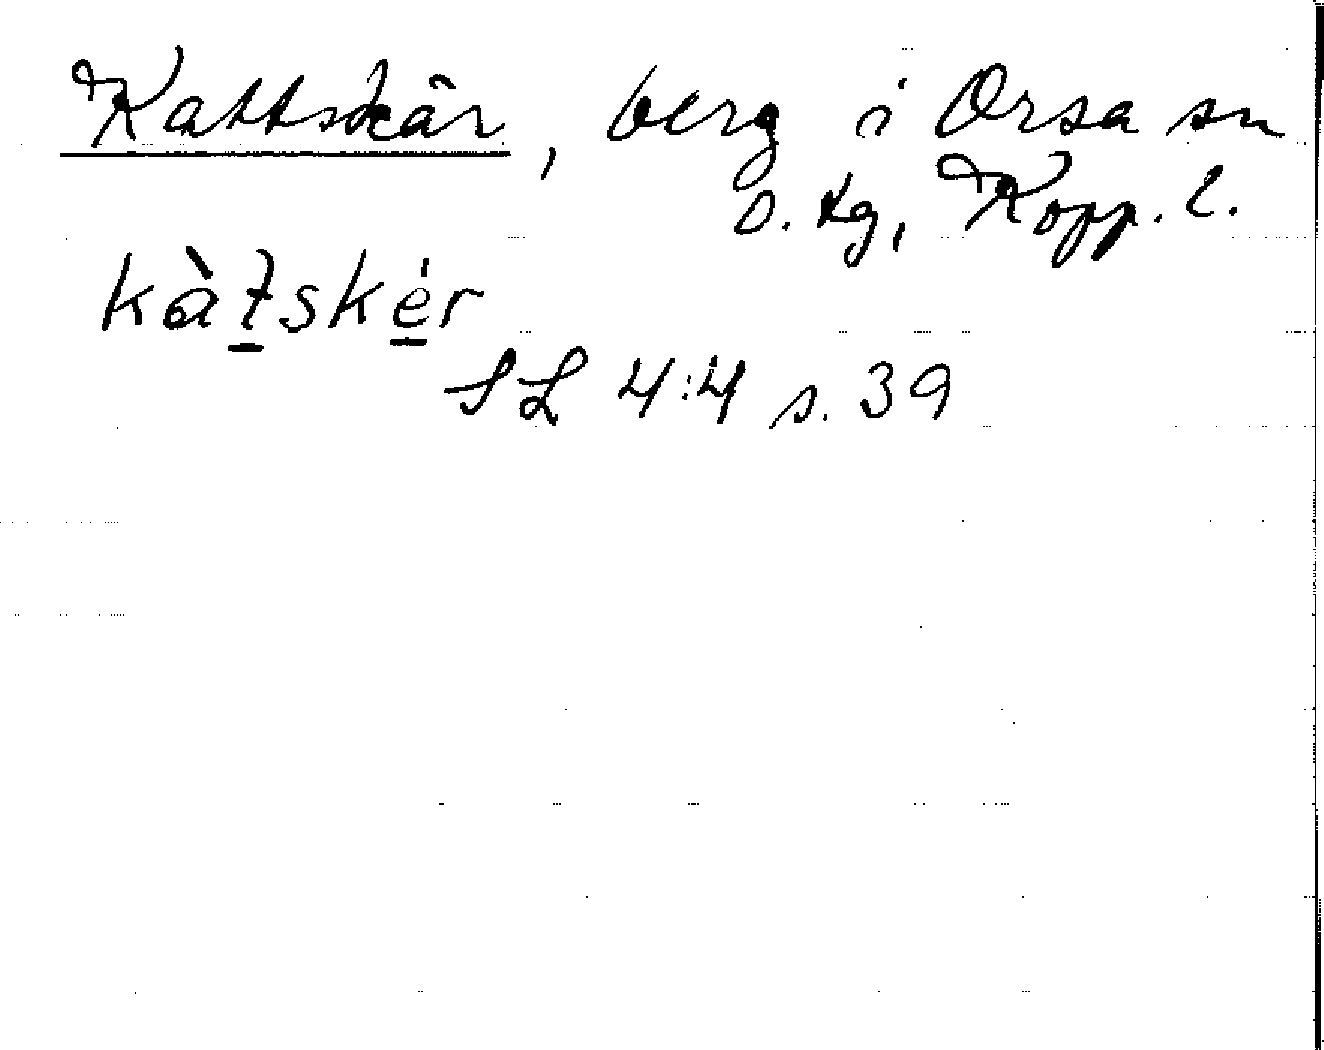 Kattskär, berg i Orsa sn
o. tg, Kopp. l.
kàt̠ske̠r
SL 4:4 s. 39